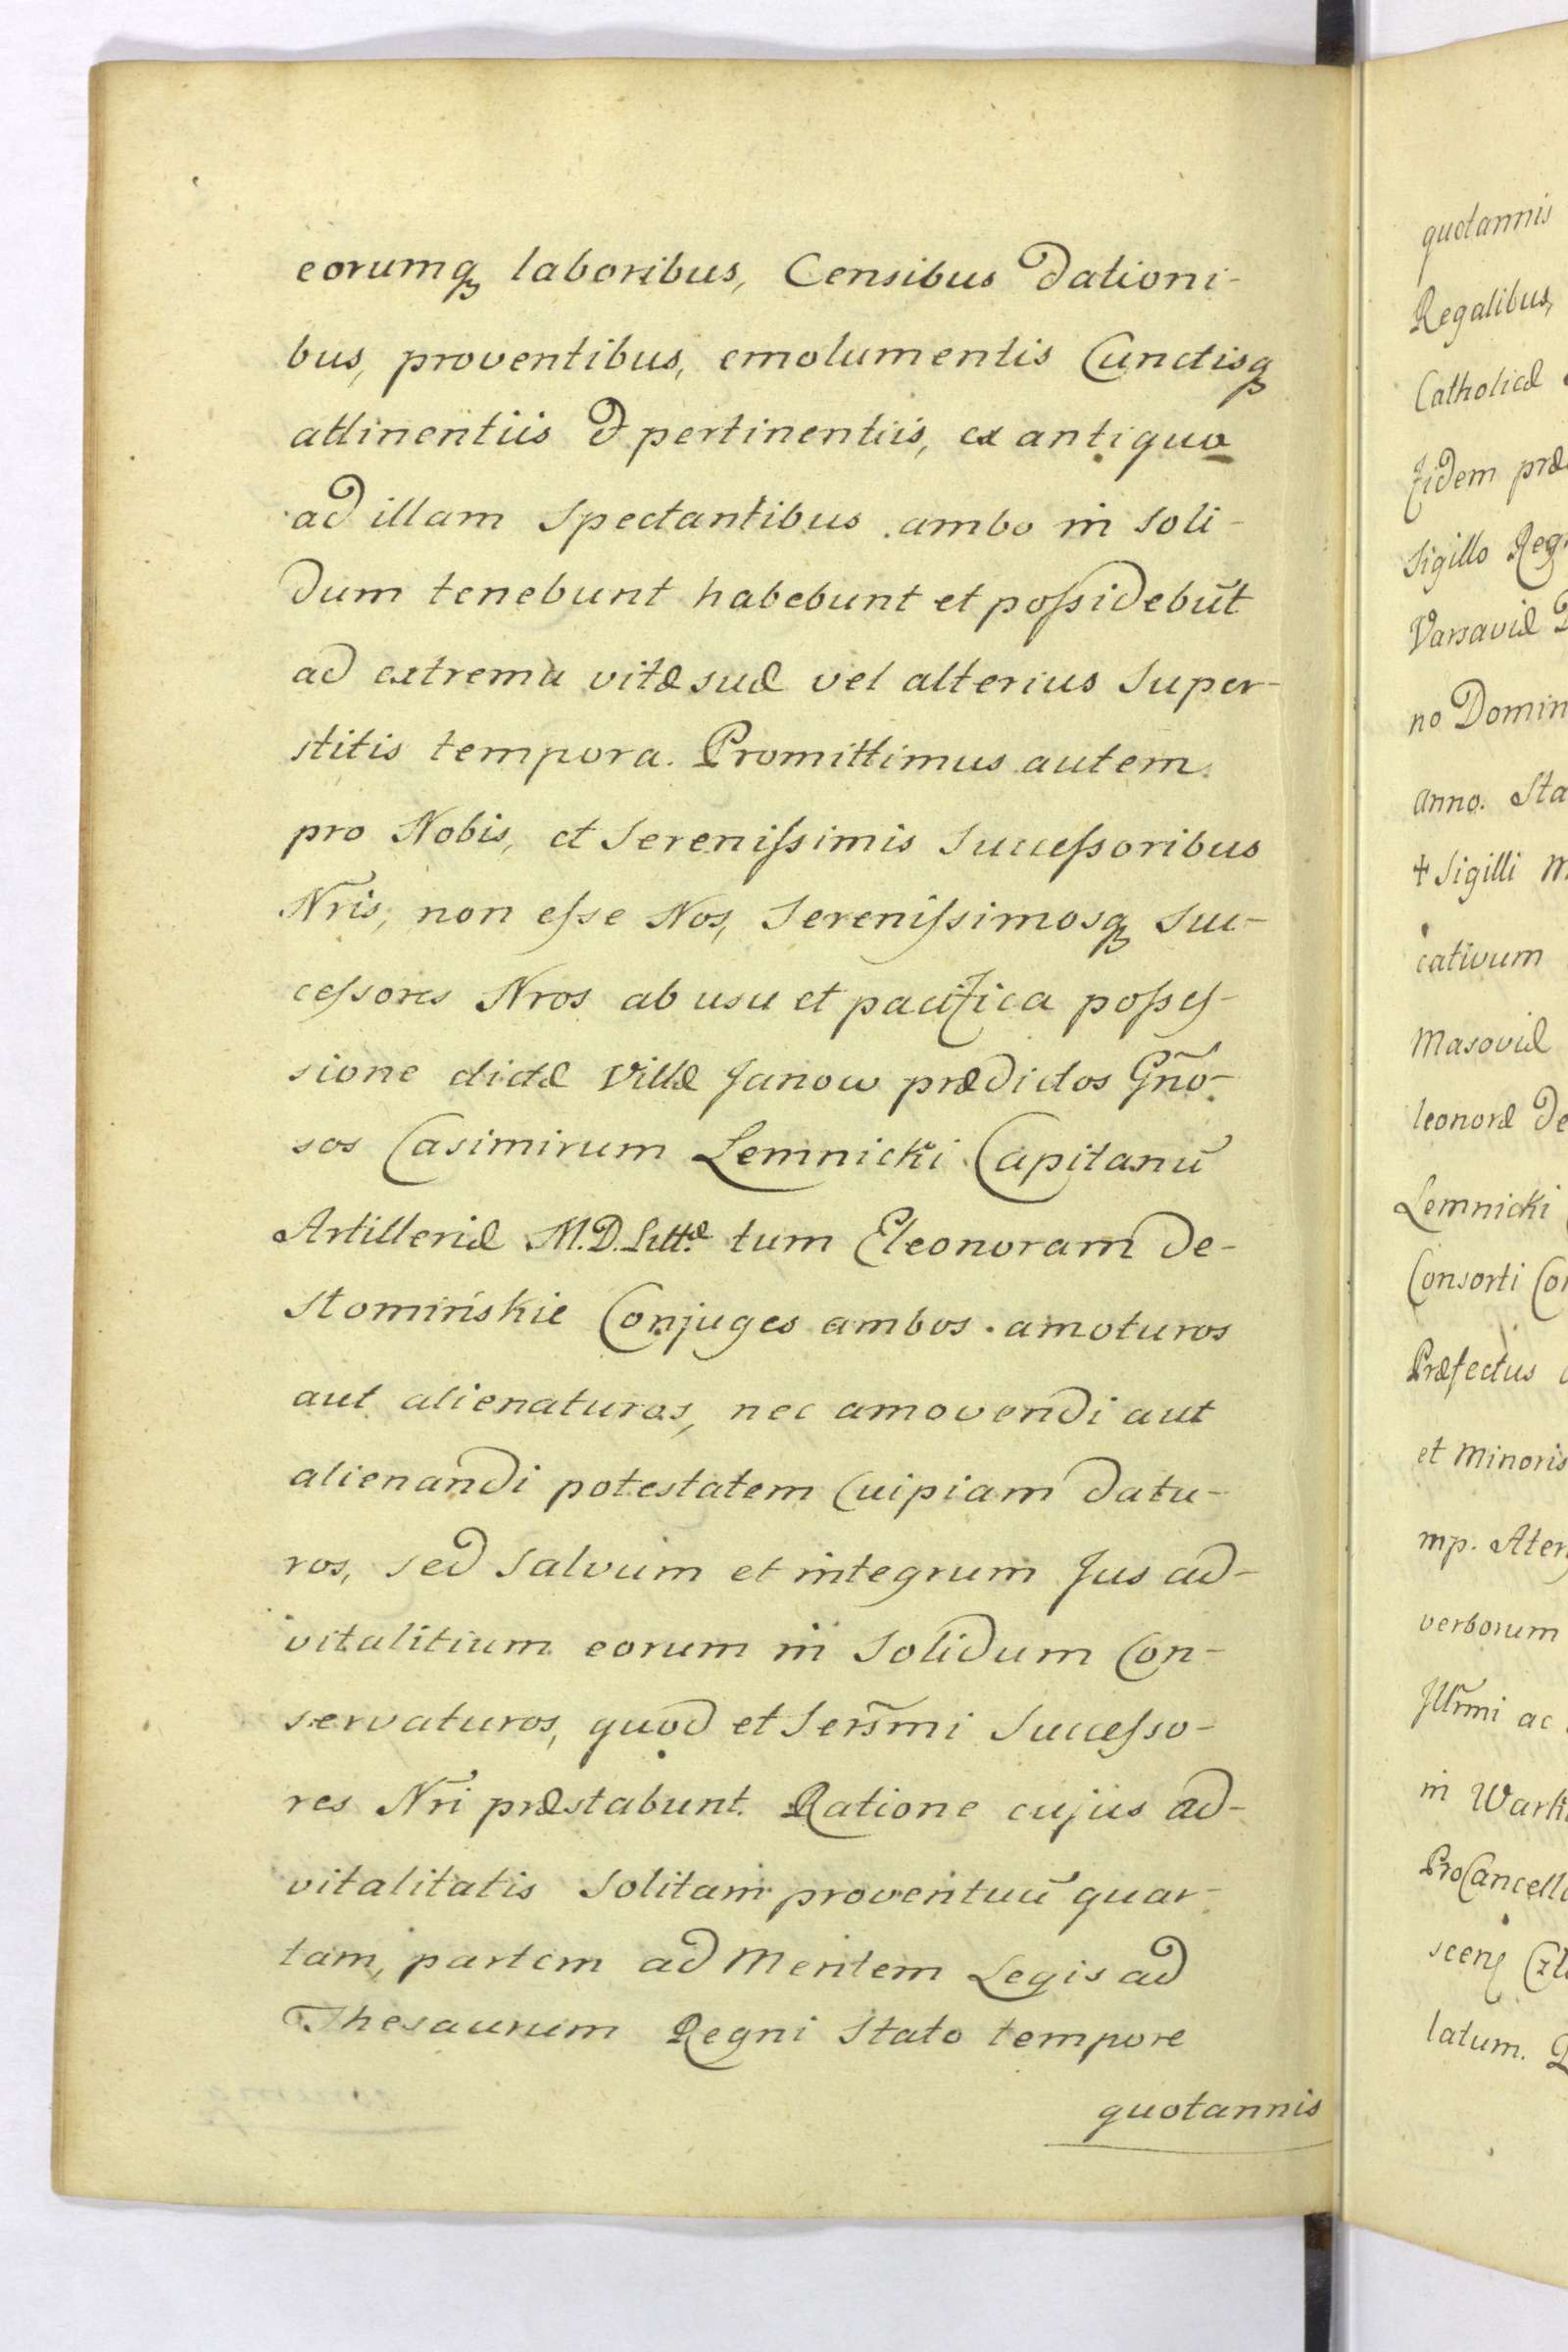 eorumq laboribus, Censibus Dationi-
bus, proventibus, emolumentis Cunctisq
attinentiis & pertinentiis, ex antiquo
ad illam Spectantibus ambo in Soli-
dum tenebunt habebunt et poſsidebūt
ad extrema vitæ suæ vel alterius Super-
stitis tempora. Promittimus autem
pro Nobis, et Sereniſsimis Succeſsoribus
Nr̃is, non eſse Nos, Sereniſsimosq Suc-
ceſsores Nros ab usu et pacifica poſseſ-
sione dictæ Villæ Janow prædictos Gño-
sos Casimirum Lemnicki Capitanū
Artilleriæ M.D.Litt.æ tum Eleonoram De-
Stomińskie Conjuges ambos amoturos
aut alienaturos, nec amovendi aut
alienandi potestatem Cuipiam datu-
ros, sed Salvum et integrum Jus ad-
vitalitium eorum in Solidum Con-
servaturos, quod et Sers̃mi Succeſso-
res Nr̃i præstabunt. Ratione cujus ad-
vitalitatis Solitam proventuū quar-
tam, partem ad Mentem Legis ad
Thesaurum Regni Stato tempore
quotannis
quotannis
Regalibus,
Catholicæ
Fidem
Sigillo
Varsaviæ
no
Anno.
+ Sigilli
cativum
Masoviæ
leonoræ De
Lemnicki
Consorti
Præfectus
et Minoris
mp.
verborum
Jllr̃mi ac
in
latum.